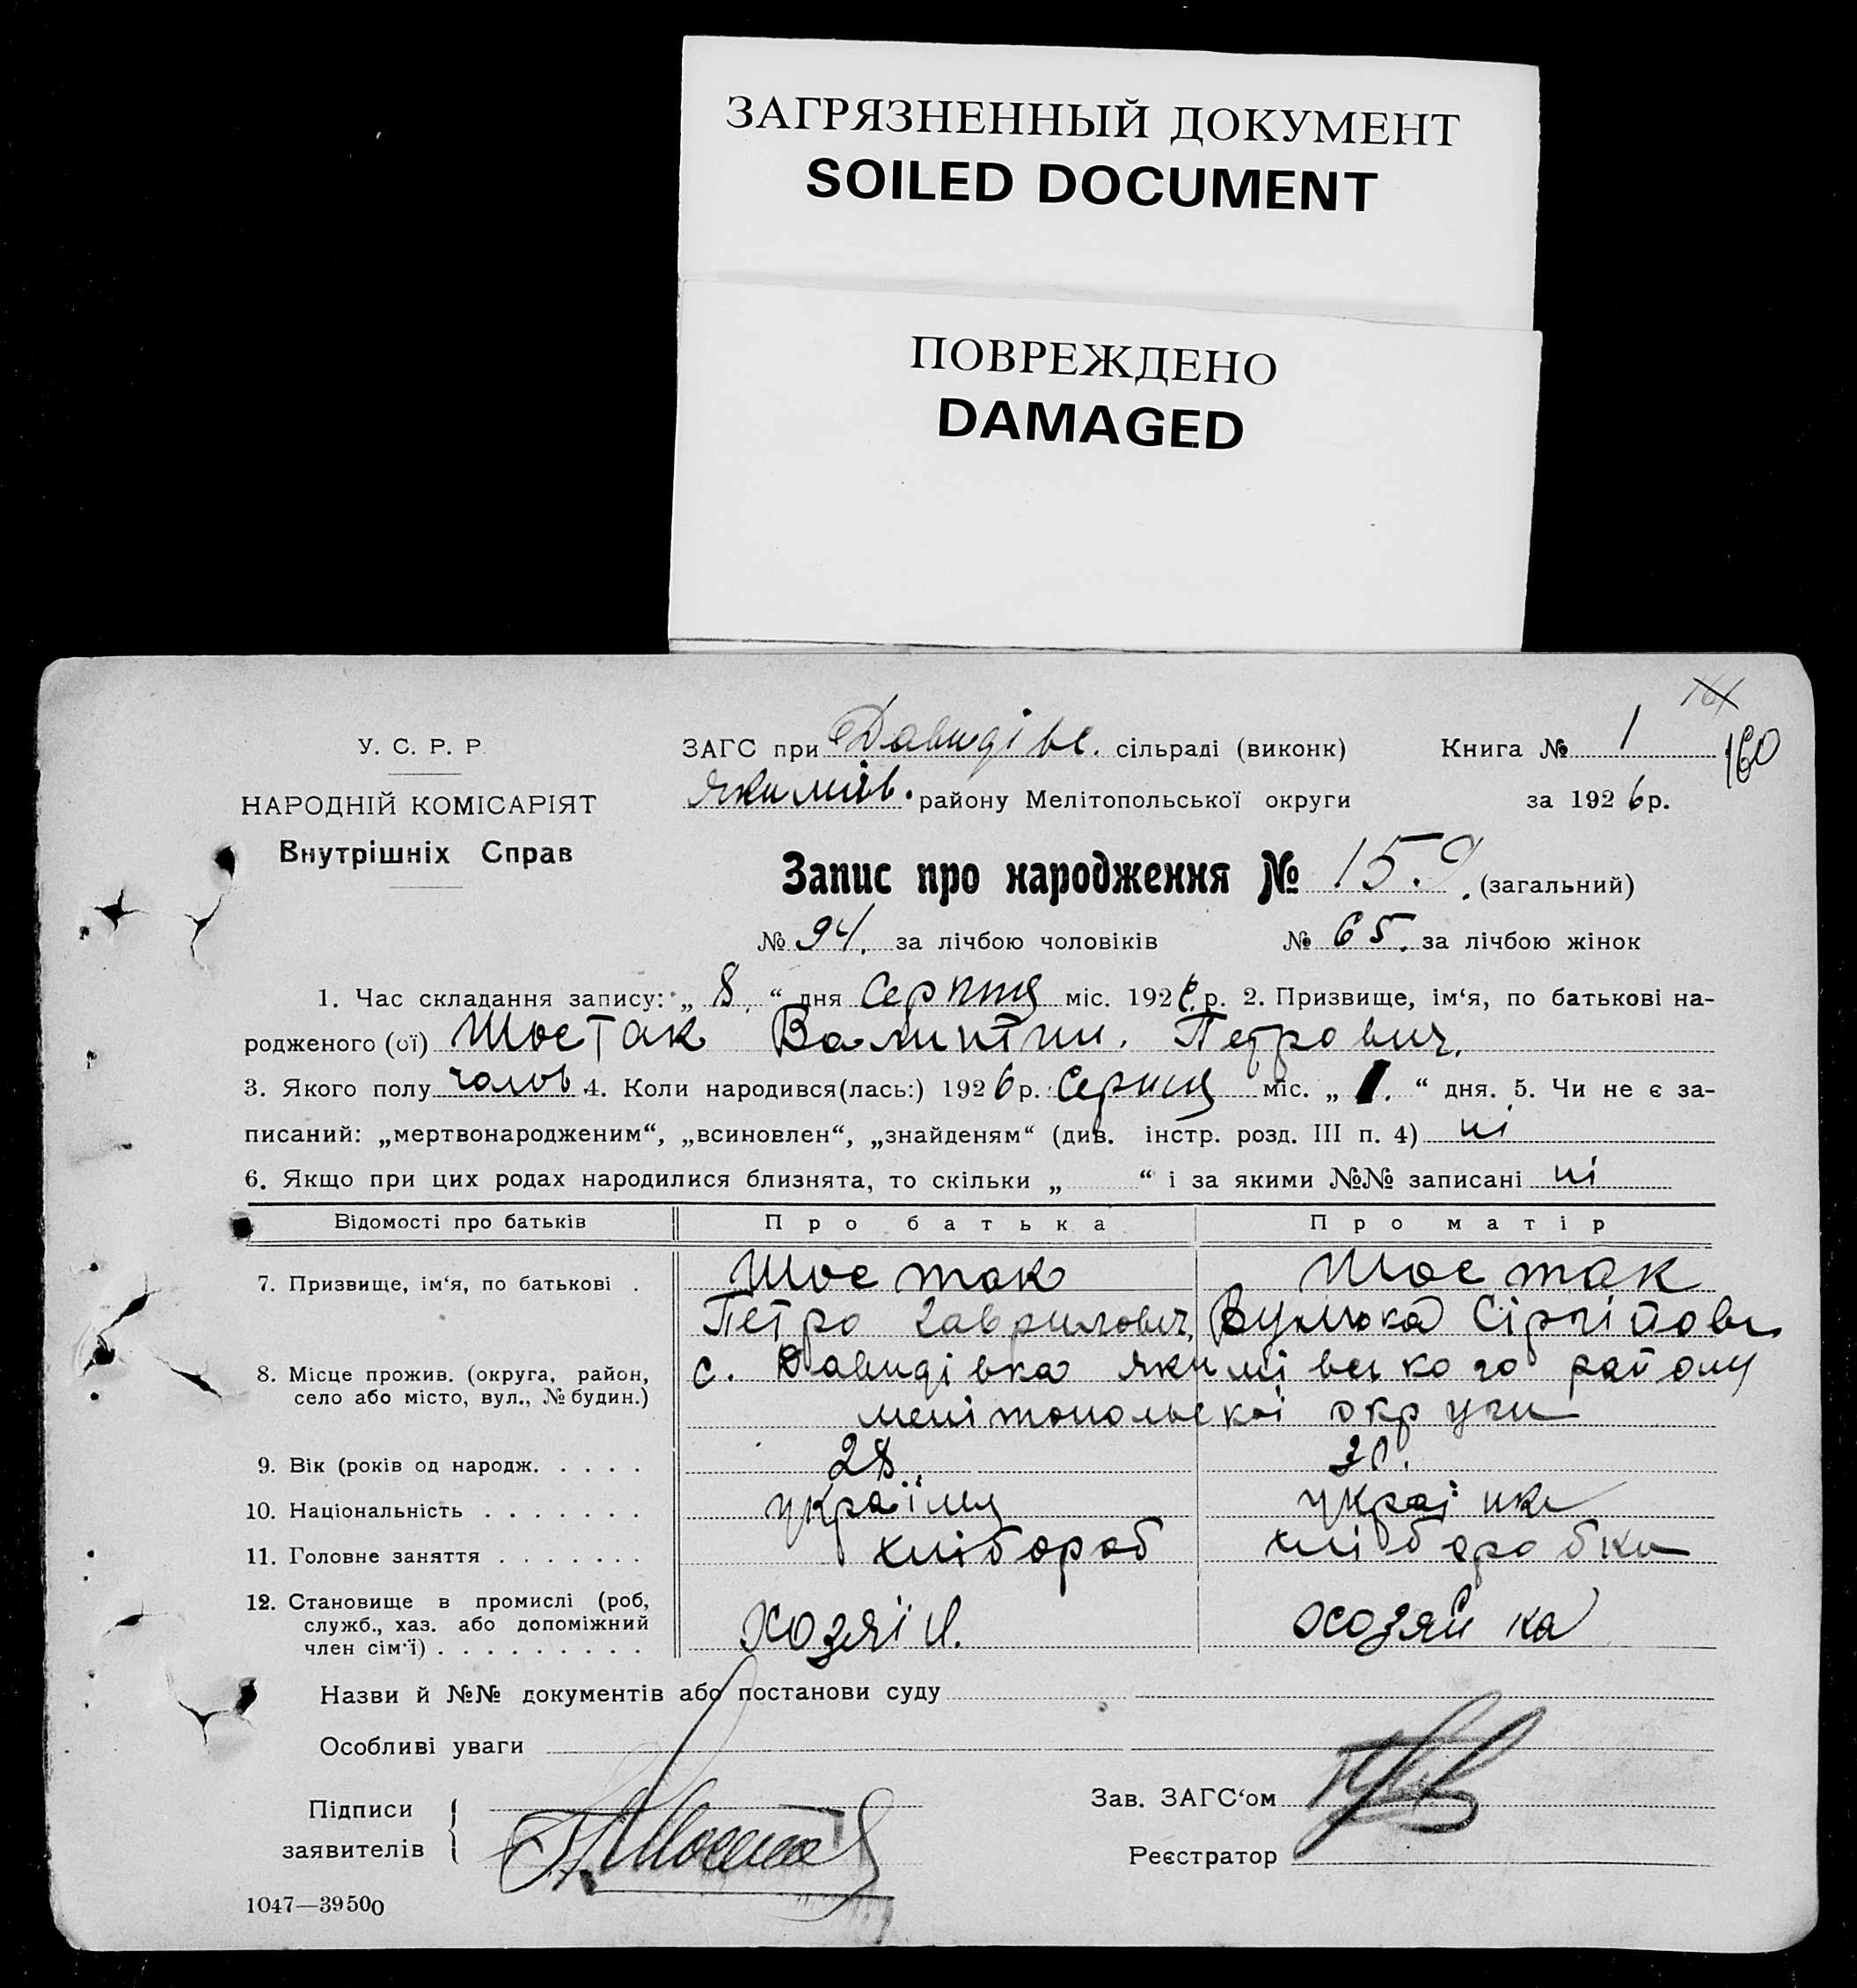 ЗАГРЯЗНЕННЫЙ ДОКУМЕНТ
SOILED DOCUMENT
ПОВРЕЖДЕНО
DAMAGED
160
У. С. Р. Р.
НАРОДНІЙ КОМІСАРІЯТ
Внутрішніх Справ
ЗАГС при Давидівс. сільраді (виконк) Книга № 1
Якимів. району Мелітопольської округи за 1926 р.
Запис про народження № 159. (загальний)
№ 94. за лічбою чоловіків № 65. за лічбою жінок
1. Час складання запису: „ 8. “ дня Серпня міс. 1926 р. 2. Призвище, ім‘я, по батькові на-
родженого (ої) Шостак Валинтин. Петрович.
3. Якого полу чолов 4. Коли народився(лась:) 1926 р. Серпня міс. „ 1. “ дня. 5. Чи не є за-
писаний: „мертвонародженим“, „всиновлен“, „знайденям“ (див. інстр. розд. III п. 4) ні
6. Якщо при цих родах народилися близнята, то скільки „ “ і за якими №№ записані ні
Відомості про батьків Про батька Про матір
7. Призвище, ім‘я, по батькові . Шостак Шостак
Петро Гаврилович Сіргіювн
8. Місце прожив. (округа, район, село або місто, вул., № будин.) с. Давидівка Якимівського району
мелітопольскої округи
9. Вік (років од народж. . . . . 28. 30.
10. Національність . . . . . . . україиц українка
11. Головне заняття . . . . . . . хлібороб хлібаробка
12. Становище в промислі (роб,
служб., хаз. або допоміжний
член сім‘ї) . . . . . . . . . хозяїн. хозяйка
Назви й №№ документів або постанови суду
Особливі уваги
Підписи
заявителів
Шостак
Зав. ЗАГС‘ом
Реєстратор
1047—39500